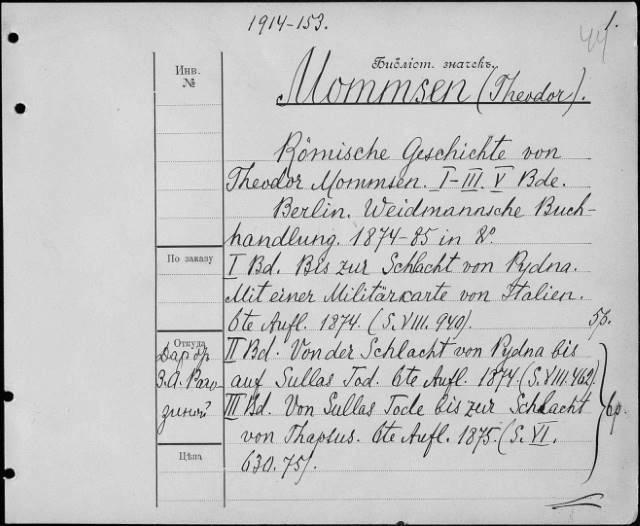 1914-153.
1.
44
Библіот. значекъ.
Инв.
№
Mommsen (Theodor).
Römische Geschichte von
Theodor Mommsen. I-III. V Bde.
Berlin. Weidmannsche Buch-
handlung. 1874-85 in 8º.
По заказу
I Bd. Bis zur Schlacht von Pydna.
Mit einer Militärkarte von Italien.
6te Aufl. 1874. (S. VIII. 940).
Откуда
Даръ
З. А. Раго-
зиной
II Bd. Von der Schlacht von Pydna bis
auf Sullas Tod. 6te Aufl. 1874. (S. VIII. 462).
III Bd. Von Sullas Tode bis zur Schlacht
von Thapsus. 6te Aufl. 1875. (S. VI.
630. 75).
Цѣна